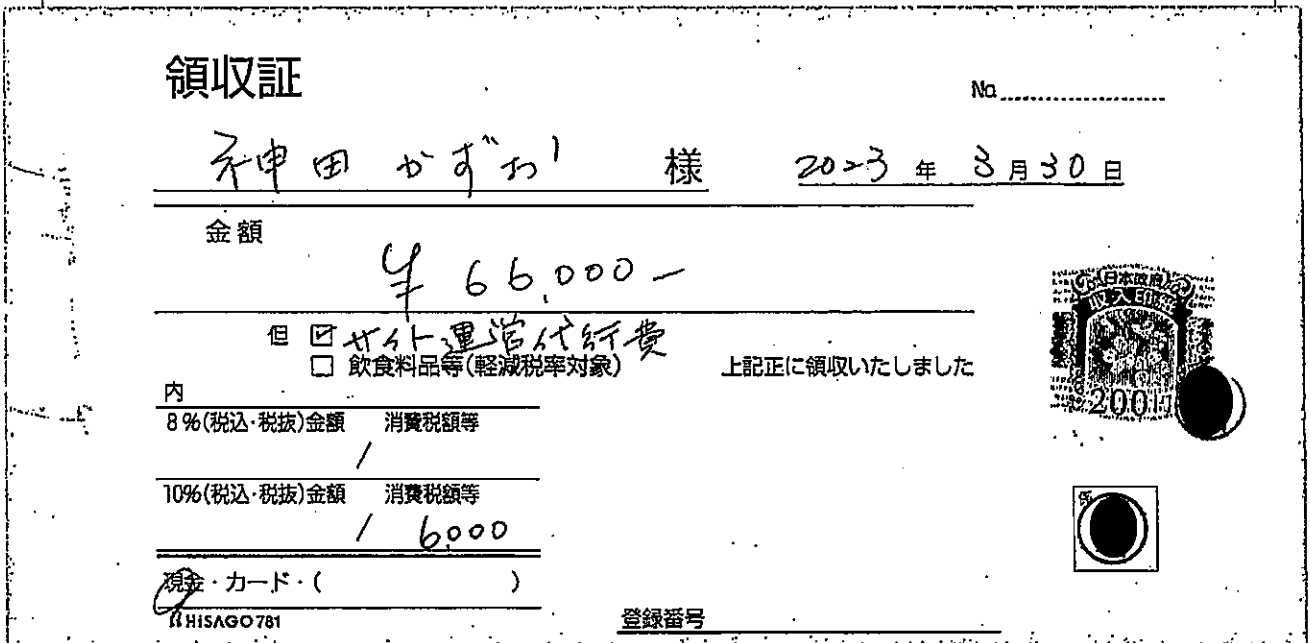 領収証
No.
神田 かずお 様 2023 年 3 月 30 日
金額
¥ 66,000-
但 ☑ サイト運営代行費
□ 飲食料品等(軽減税率対象) 上記正に領収いたしました
内
8%(税込・税抜)金額 消費税額等
/
10%(税込・税抜)金額 消費税額等
/ 6,000
現金・カード・( )
HISAGO 781
登録番号
日本政府
収入印紙
200円
係